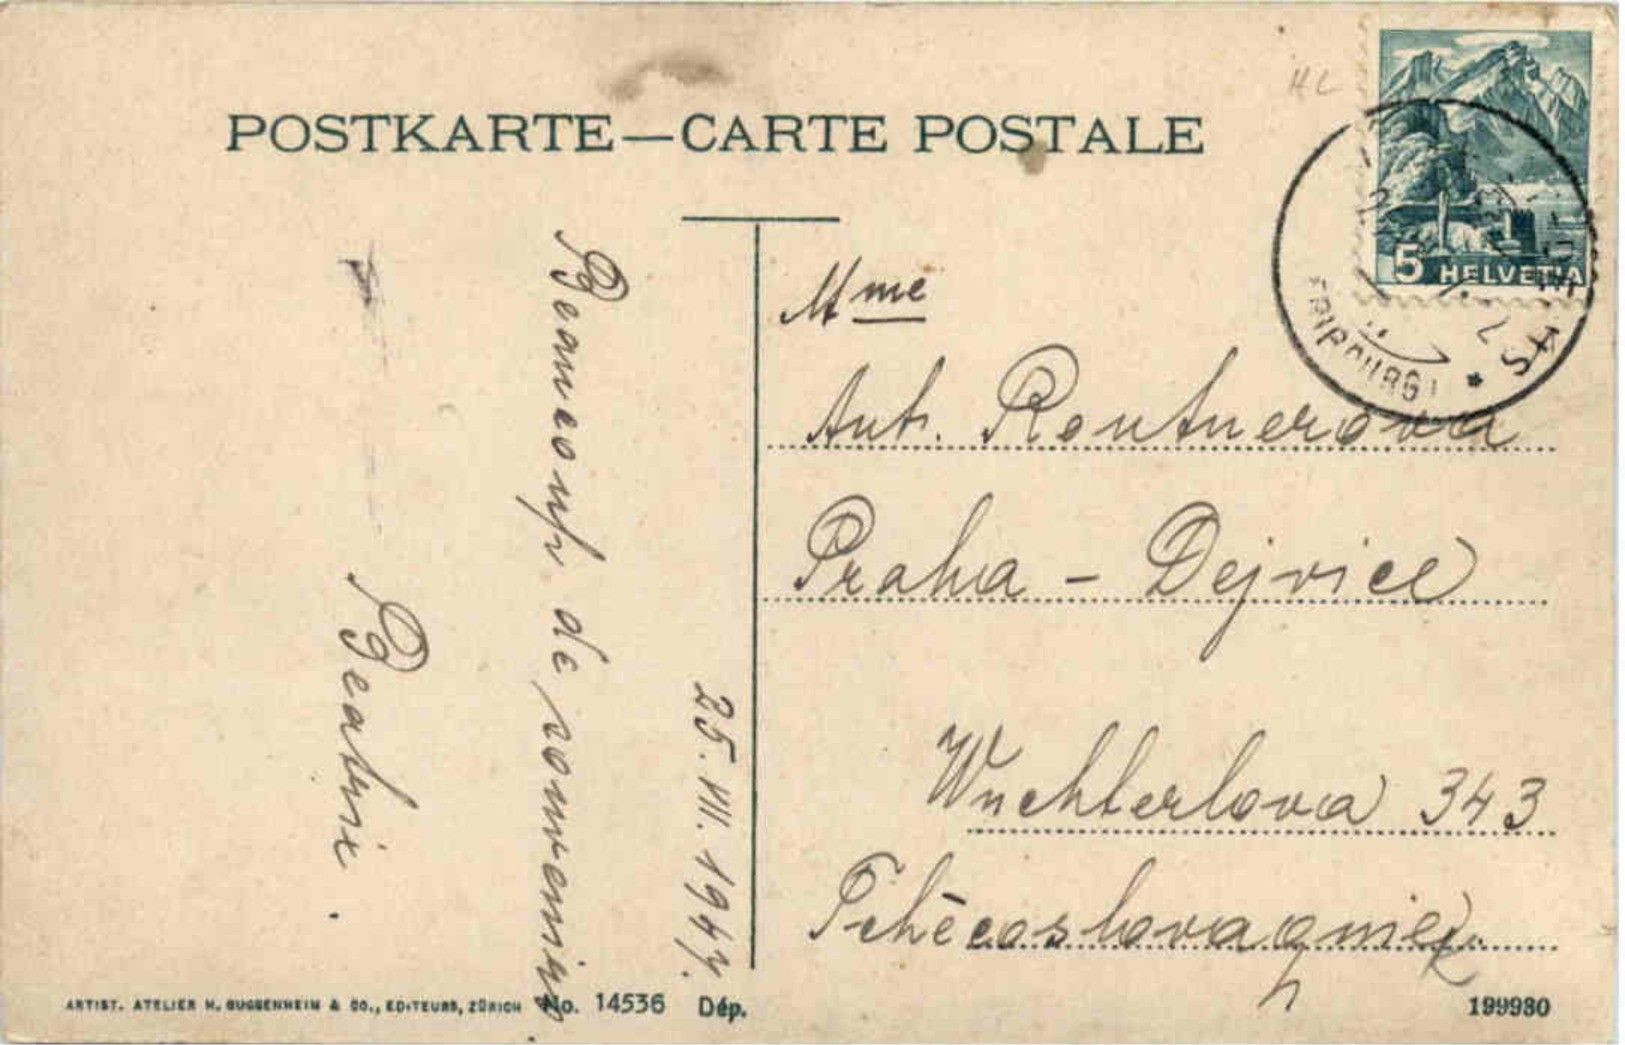 POSTKARTE—CARTE POSTALE
HL
5 HELVETIA
FRIBOURG
Beaucoup de souvenirs
Beatrix.
25. VII. 1947.
Mme
Ant. Routnerova
Praha - Dejvice
Wuchterlova 343
Tchécoslovaquie
ARTIST. ATELIER H. GUGGENHEIM & CO., EDITEURS, ZÜRICH No. 14536 Dép.
199980